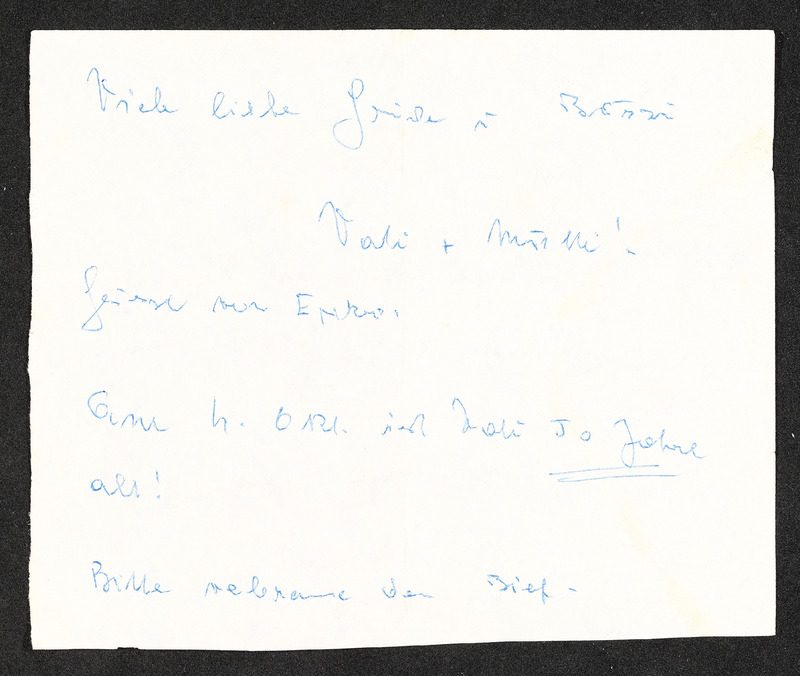 Viele liebe Grüsse u Bussi
Vati + Mutti!
Grüsse von
Am 4. Okt. ist Vati 50 Jahre
alt!
Bitte verbrenne den Brief -